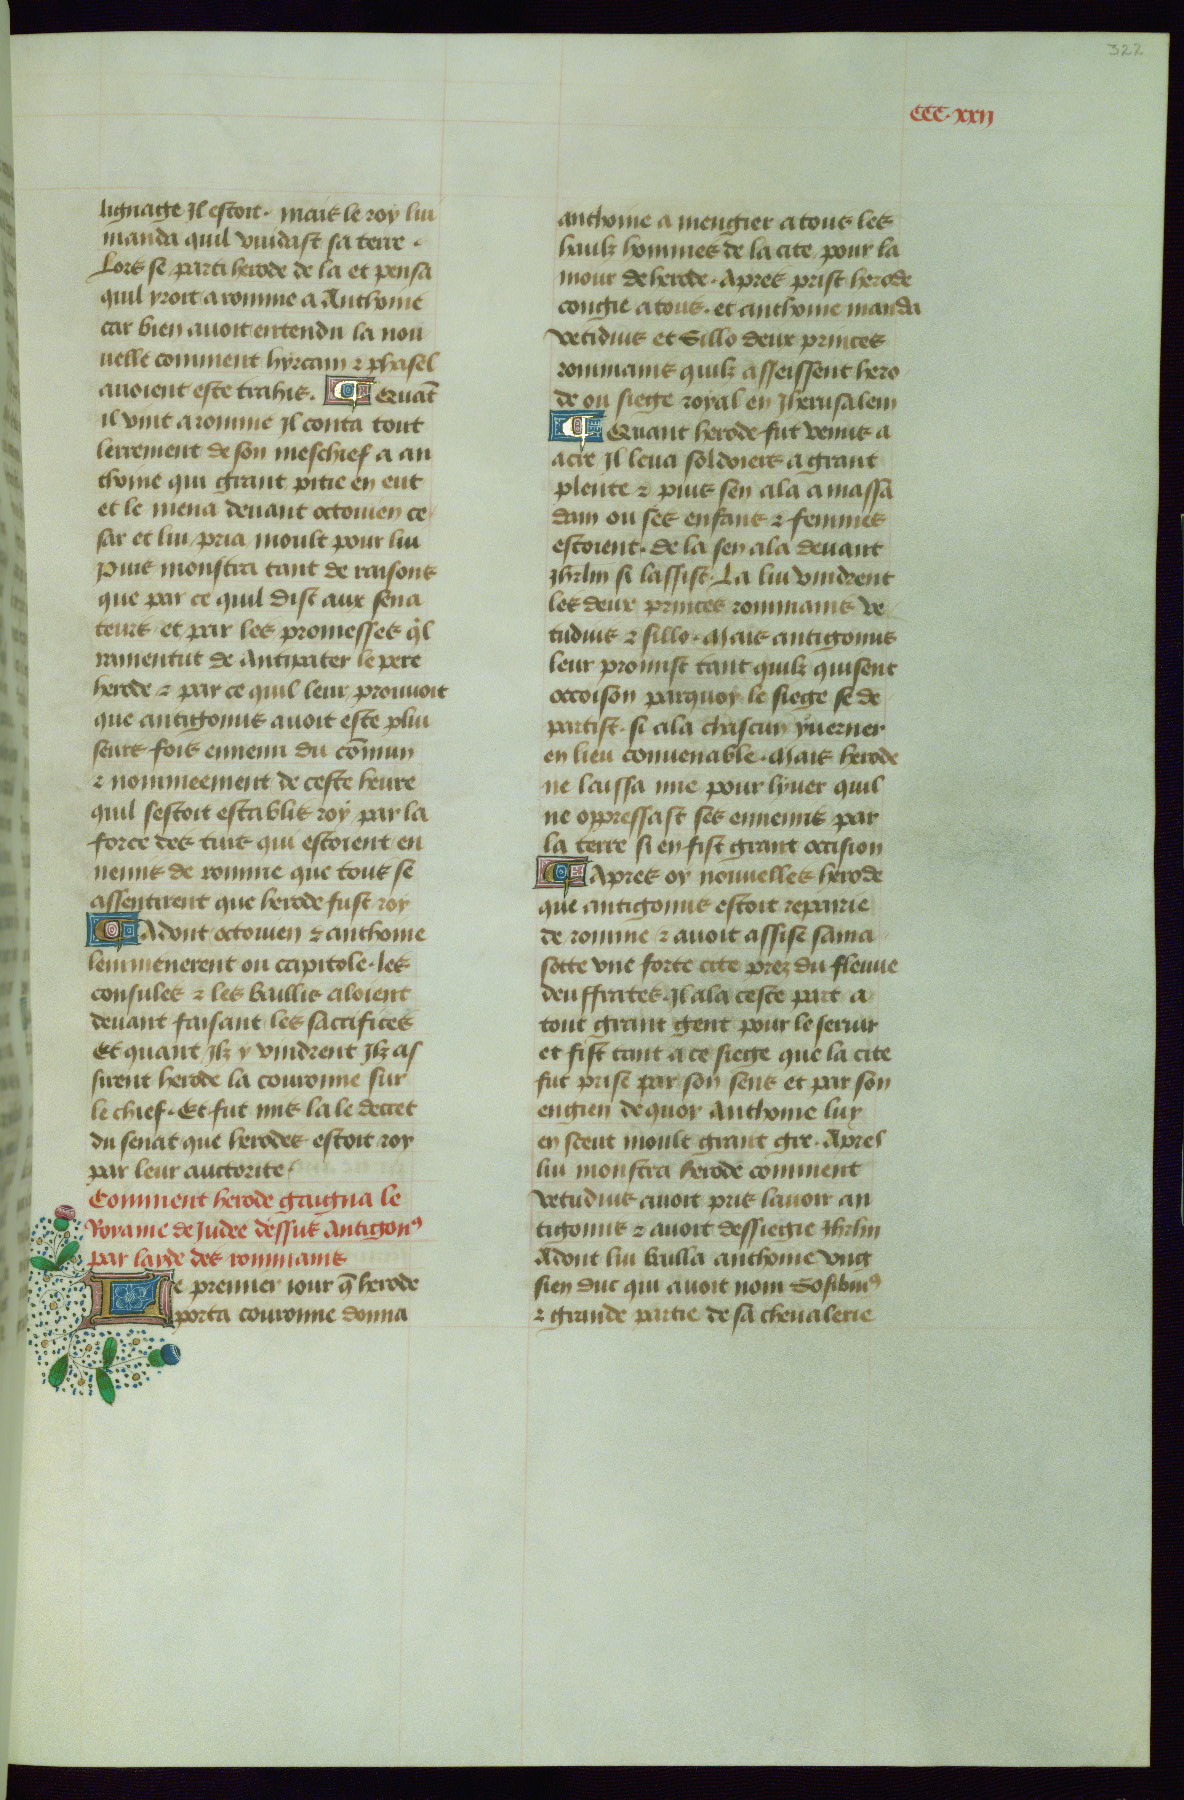 322
CCC.xxij
lignage Il estoit. mais le roy lui
manda quil vuidast sa terre.
Lors se parti herode de la et pensa
quil yroit a romme a Anthoine
car bien auoit entendu la nou
uelle comment hyrcam ⁊ phasel
auoient este trahis. ¶ Quāt
il vint a romme Il conta tout
lerrement de son meschief a an
thoine qui grant pitie en eut
et le mena deuant octouien ce
sar et lui pria moult pour lui
Puis monstra tant de raisons
que par ce quil dist aux sena
teurs et par les promesses q̄l
ramentut de Antipater le pere
herode ⁊ par ce quil leur prouuoit
que antigonus auoit este plui
seurs fois ennemi du cōmun
⁊ nommeement de ceste heure
quil sestoit establis roy par la
force des turs qui estoient en
nemis de romme que tous se
assentirent que herode fust roy
¶ Adont octouien ⁊ anthoine
lenmenerent ou capitole. les
consules ⁊ les baillis aloient
deuant faisant les sacrifices
Et quant Ilz y vindrent Ilz as
sirent herode la couronne sur
le chief. Et fut mis la le decret
du senat que herodes estoit roy
par leur auctorite.
Comment herode gaigna le
Royame de Judee dessus Antigonꝰ
par layde des rommains
Le premier iour q̄ herode
porta couronne donna
anthoine a mengier a tous les
haulz hommes de la cite pour la
mour de herode. Apres prist herode
congie a tous. et anthoine manda
vetidius et Sillo deux princes
rommains quilz asseissent hero
de ou siege royal en Jherusalem
¶ Quant herode fut venus a
acre Il leua soldoiers a grant
plente ⁊ puis sen ala a massa
dam ou ses enfans ⁊ femmes
estoient. de la sen ala deuant
Jhrlm si lassist. La lui vindrent
les deux princes rommains ve
tudius ⁊ sillo. Mais antigonus
leur promist tant quilz quisent
occoison parquoy le siege se de
partist. si ala chascun yuerner
en lieu conuenable. Mais herode
ne laissa mie pour lyuer quil
ne oppressast ses ennemis par
la terre si en fist grant occision
¶ Apres oy nouuelles herode
que antigonus estoit repairie
de romme ⁊ auoit assise sama
sette vne forte cite prez du fleuue
deuffrates. Il ala ceste part a
tout grant gent pour le seruir
et fist tant a ce siege que la cite
fut prise par son sens et par son
engien de quoy Anthoine luy
en sceut moult grant gre. Apres
lui monstra herode comment
vetudius auoit pris lauoir an
tigonus ⁊ auoit dessiegie Jhrlm
Adont lui bailla anthoine vng
sien duc qui auoit nom Sosibiuꝰ
⁊ grande partie de sa cheualerie